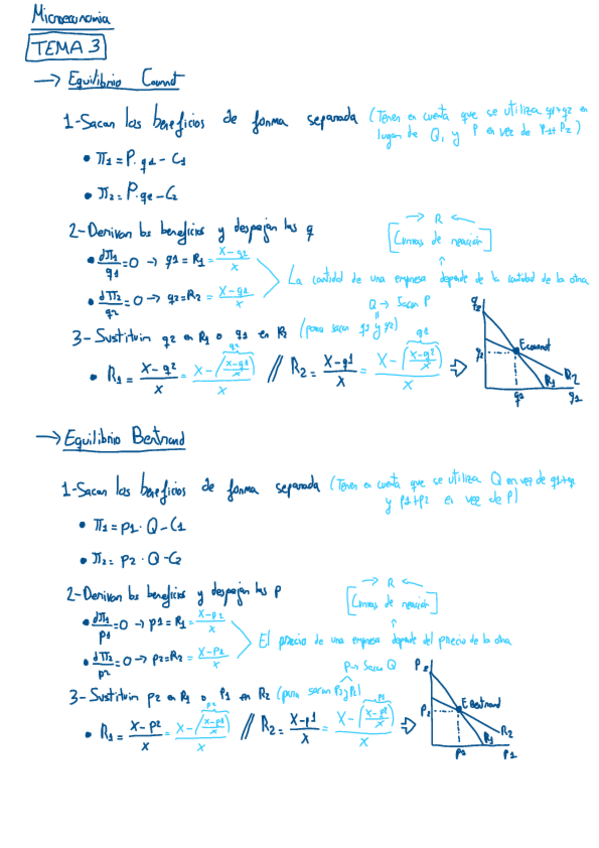 Microeconomia
TEMA 3
→ Equilibrio Cournot
1-Sacan los beneficios de forma separada (Tener en cuenta que se utiliza q1+q2 en
lugar de Q, y P en vez de P1+P2)
• π1 = P·q1 - C1
• π2 = P·q2 - C2
2-Derivan los beneficios y despejan las q
→ R ←
[Curvas de reacción]
• dπ1/q1 = 0 → q1 = R1 = X-q2/X
• dπ2/q2 = 0 → q2 = R2 = X-q1/X
La cantidad de una empresa depende de la cantidad de la otra
Q → Sacan P
3-Sustituim q2 en R1 o q1 en R2 (para sacan q1 y q2)
• R1 = X-q2/X = X-(X-q1/X)/X // R2 = X-q1/X = X-(X-q2/X)/X ⇒
q2
q2
Ecournot
R1
R2
q1
q1
→ Equilibrio Bertrand
1-Sacan los beneficios de forma separada (Tener en cuenta que se utiliza Q en vez de q1+q2
y P1+P2 en vez de P)
• π1 = p1·Q - C1
• π2 = p2·Q - C2
2-Derivan los beneficios y despejan las p
→ R ←
[Curvas de reacción]
• dπ1/p1 = 0 → p1 = R1 = X-p2/X
• dπ2/p2 = 0 → p2 = R2 = X-p1/X
El precio de una empresa depende del precio de la otra
P → Sacan Q
3-Sustituim p2 en R1 o p1 en R2 (para sacan P1 y P2)
• R1 = X-p2/X = X-(X-p1/X)/X // R2 = X-p1/X = X-(X-p2/X)/X ⇒
P2
P2
E Bertrand
R2
R1
P1
P1